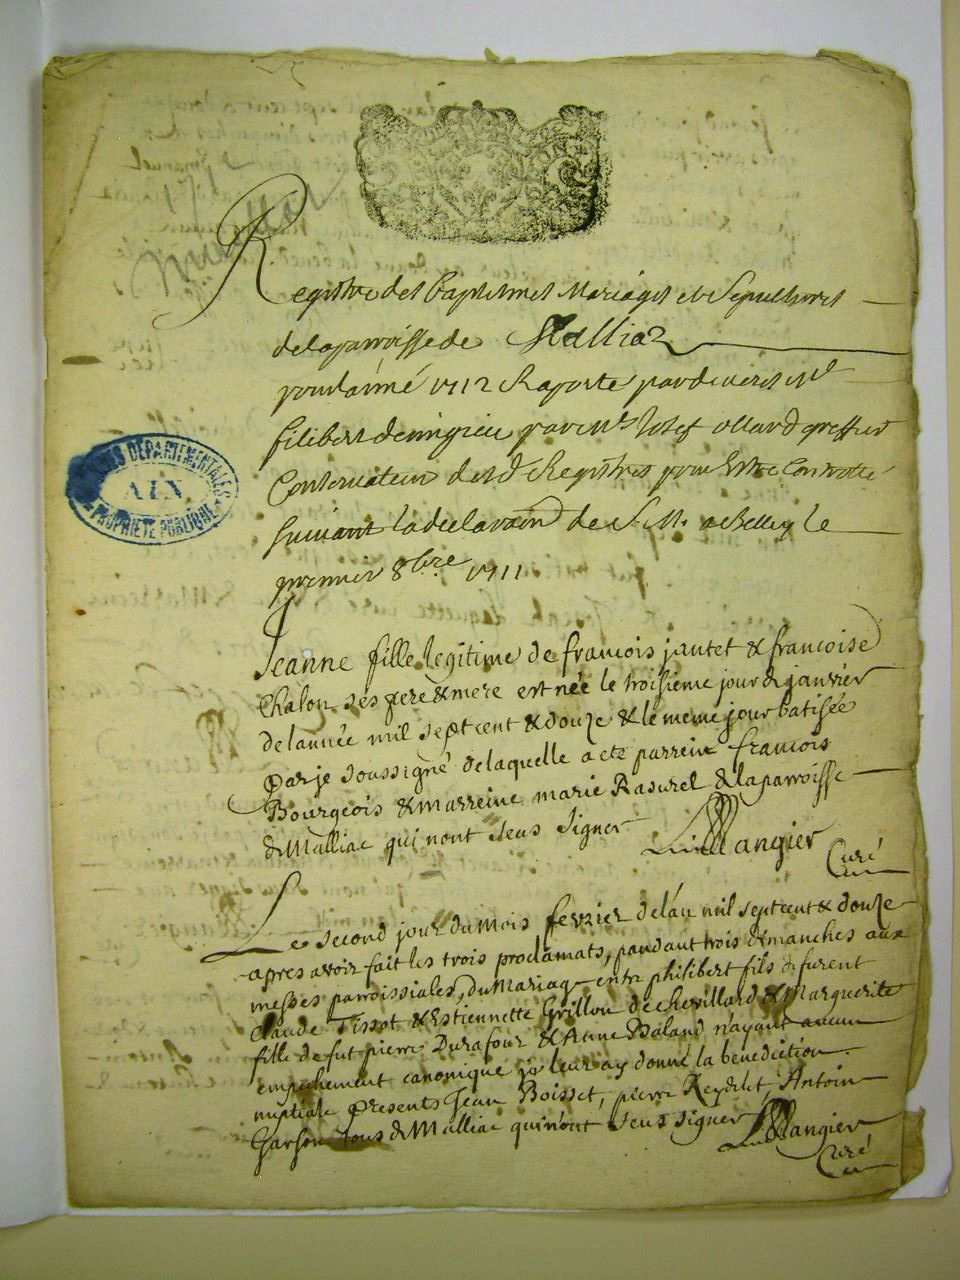 Registre des Baptesmes Mariages et Sepultures
de la parroisse de Malliaz
pour lanné 1712 & raporté pardevers
filibert par Josef ollard greffier
Conservateur desd Registres pour Estre Controlle
suivant la declaraon de S. M. a Belley le
premier 8bre 1711
ARCHIVES DEPARTEMENTALES
AIN
PROPRIETE PUBLIQUE
Jeanne fille legitime de francois jantet & francoise
Chalon ses pere & mere est née le troisieme jour de janvier
de lannée mil sept cent & douze & le meme jour batisée
par je soussigné de laquelle a eté parrein francois
Bourgeois & marreine marie Rasurel de la parroisse
de Malliac qui nont seus signer Mangier
Curé
Le second jour du mois fevrier de lan mil septcent & douze
apres avoir fait les trois proclamats, pandant trois dimanches aux
messes parroissiales, du Mariage entre philibert fils de furent
claude Tissot & Estiennette Grillon de chevillard & Marguerite
fille de fut pierre Durafour & Anne Baland n'ayant aucun
empechement canonique je leur ay donné la benediction
nuptiale presents Jean Boisset, pierre Reydelet, Antoin
Garson tous de Malliac qui n'ont seus signer Mangier
Curé